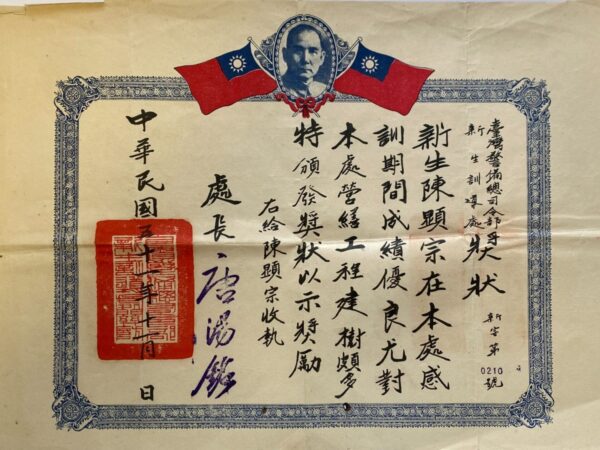 臺灣警備總司令部
新生訓導處獎狀
新字第0210號
新生陳顯宗在本處感
訓期間成績優良尤對
本處營繕工程建樹頗多
特頒發獎狀以示獎勵
右給陳顯宗收執
處長唐湯銘
中華民國五十一年十一月 日